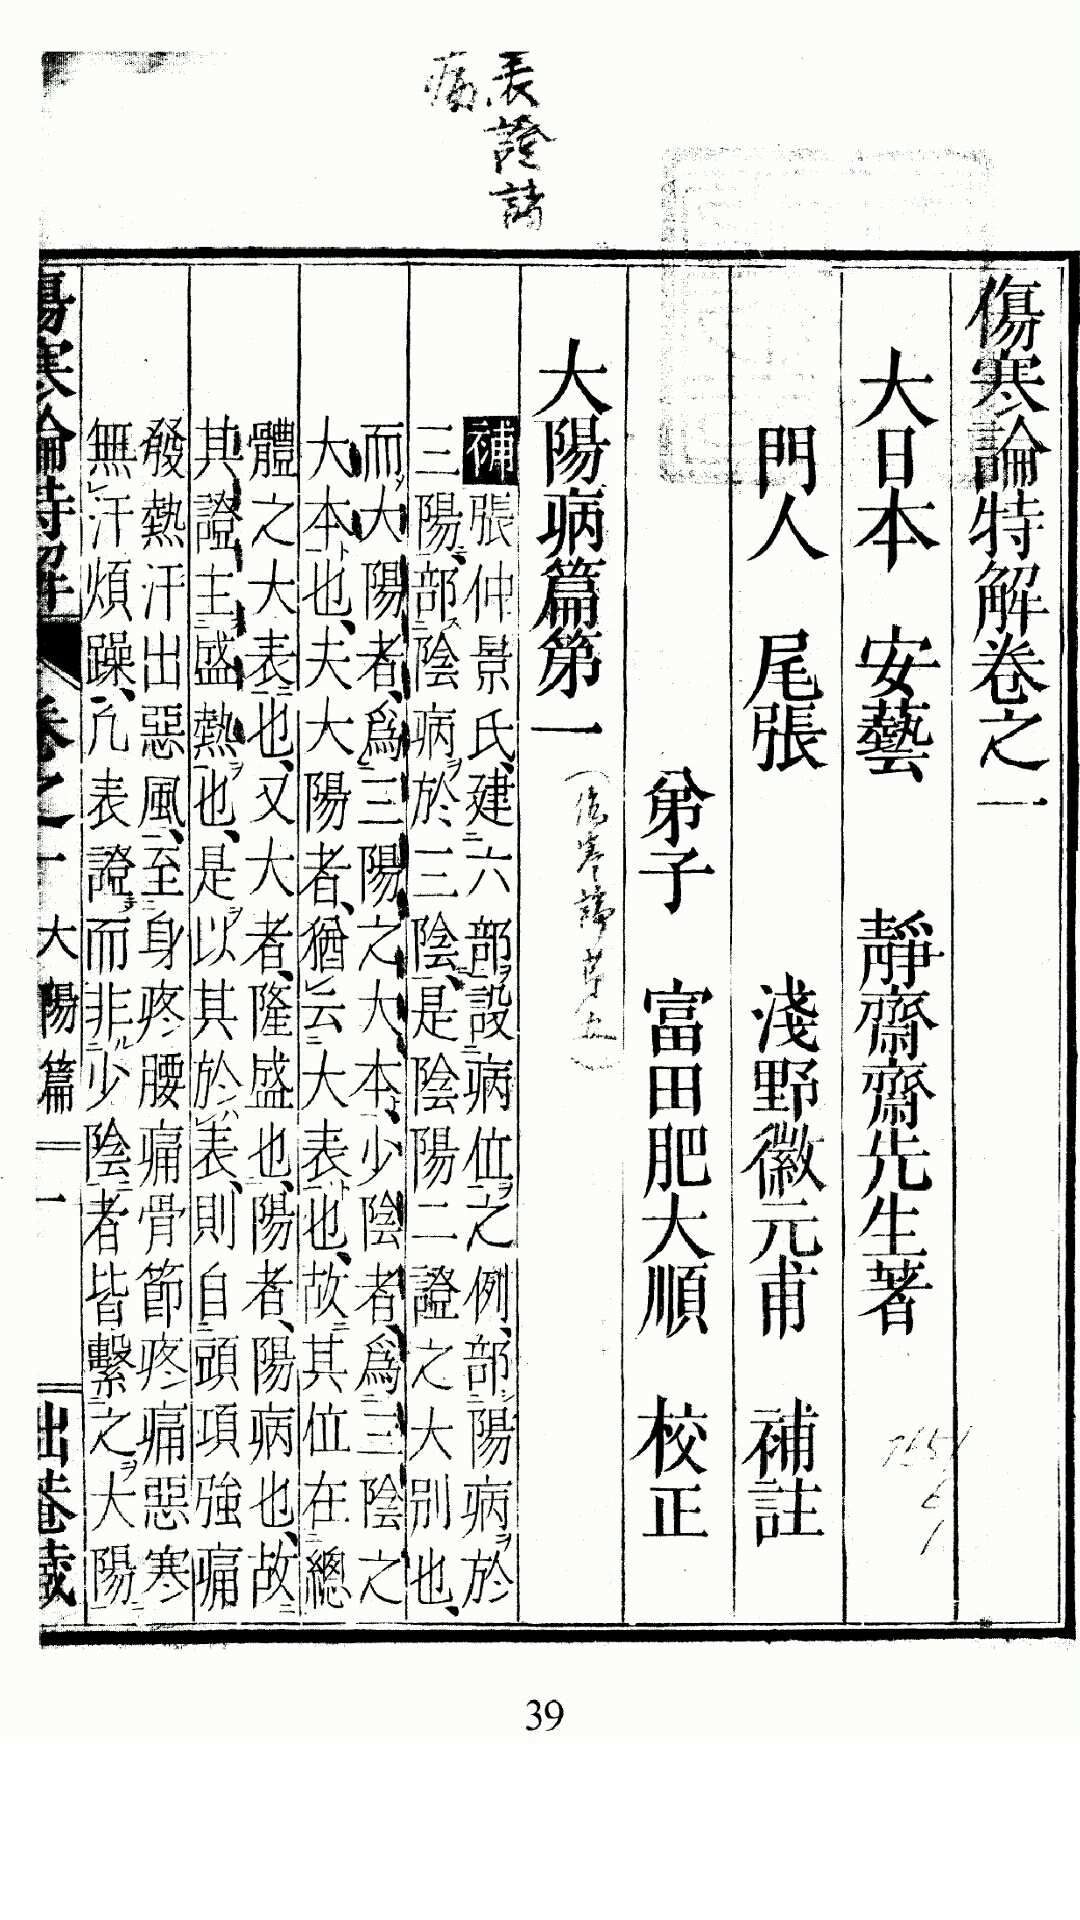 傷寒論特解卷之一
大日本 安藝 靜齋齋先生著
門人 尾張 淺野徽元甫 補註
弟子 富田肥大順 校正
大陽病篇第一
補張仲景氏、建六部設病位之例、部陽病於
三陽、部陰病於三陰、是陰陽二證之大別也、
而大陽者、爲三陽之大本、少陰者、爲三陰之
大本也、夫大陽者、猶云大表也、故其位在總
體之大表也、又大者、隆盛也、陽者、陽病也、故
其證主盛熱也、是以其於表、則自頭項強痛
發熱汗出惡風、至身疼腰痛骨節疼痛惡寒
無汗煩躁、凡表證而非少陰者皆繫之大陽
傷寒論特解 卷之一 大陽篇 一
表證諸
病
39